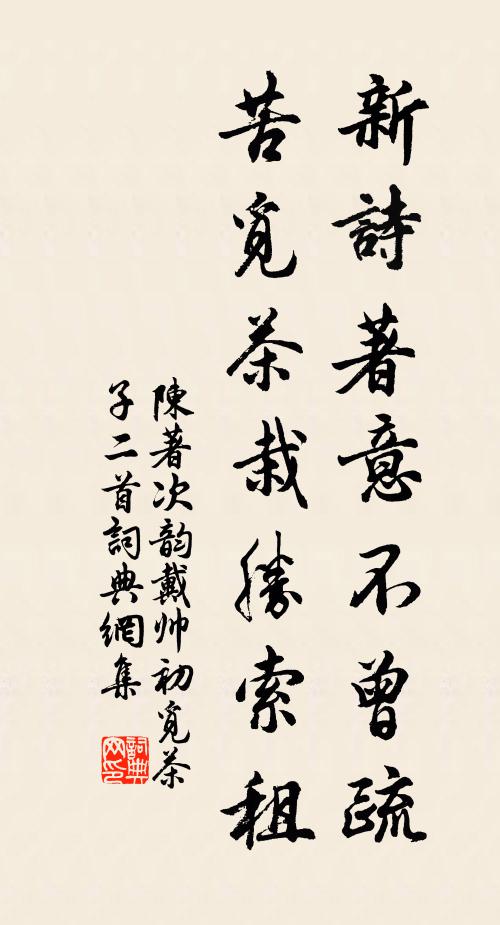 新詩著意不曾疏
苦覓茶栽勝索租
陳著次韵戴帅初覓茶
子二首詞典網集
詞典
网印